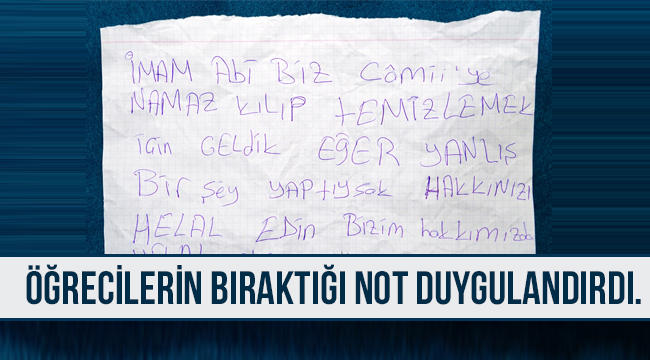 İMAM Abi Biz Câmii'ye
NAMAZ KILIP tEMİZLEMEK
için GELdik EĞER YANLIŞ
Bir şey YAPtıysak HAKKINIZI
HELAL EDin Bizim hakkımızda
HELAL
ÖĞRECİLERİN BIRAKTIĞI NOT DUYGULANDIRDI.